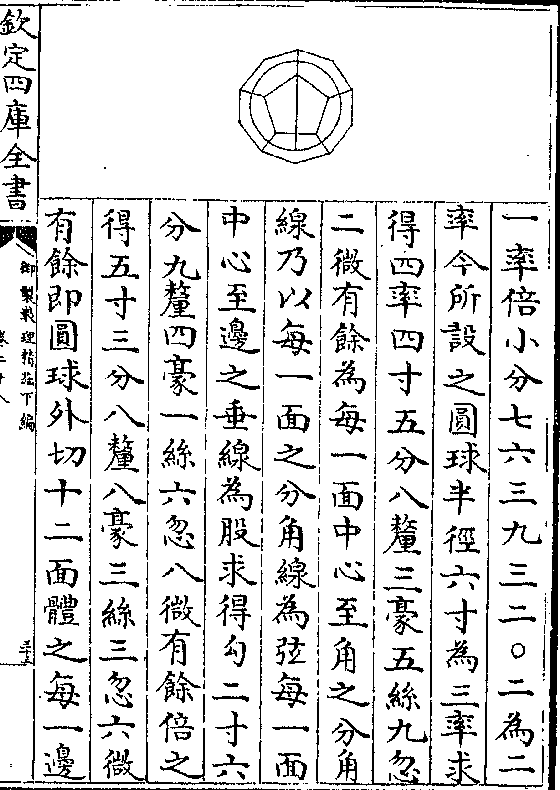 一率倍小分七六三九三二〇二為二
率今所設之圓球半徑六寸為三率求
得四率四寸五分八釐三豪五絲九忽
二微有餘為每一面中心至角之分角
線乃以每一面之分角線為弦每一面
中心至邊之垂線為股求得勾二寸六
分九釐四豪一絲六忽八微有餘倍之
得五寸三分八釐八豪三絲三忽六微
有餘即圓球外切十二面體之每一邊
欽定四庫全書
御製數理精蘊下編
卷二十八
三十五